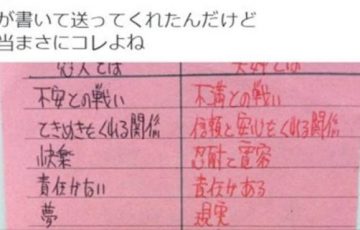 が書いて送ってくれたんだけど
当まさにコレよね
恋人とは 夫婦とは
不安との戦い 不満との戦い
ときめきをくれる関係 信頼と安心をくれる関係
快楽 忍耐と寛容
責任がない 責任がある
夢 現実